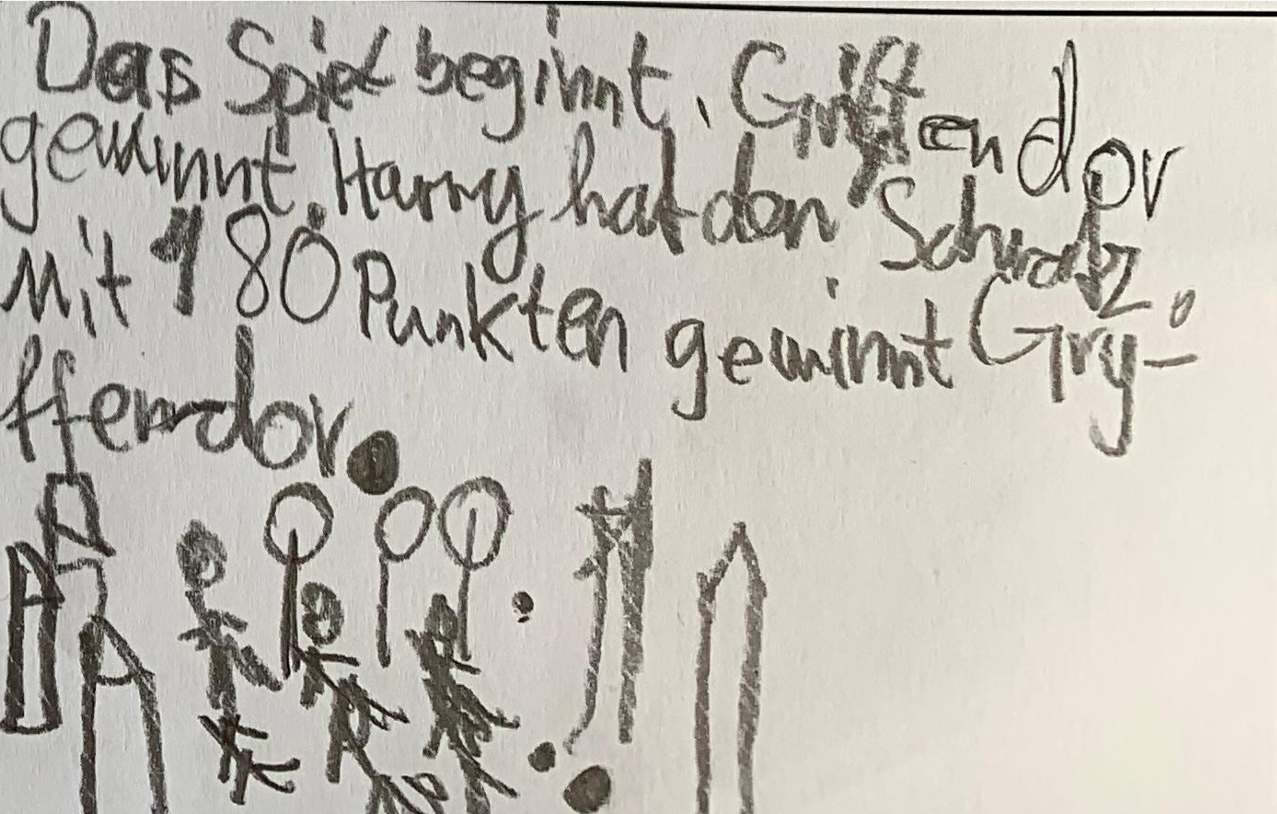 Das Spiel beginnt. Griffendor
gewinnt. Harry hat den Schnatz.
Mit 180 Punkten gewinnt Gry-
ffendor.